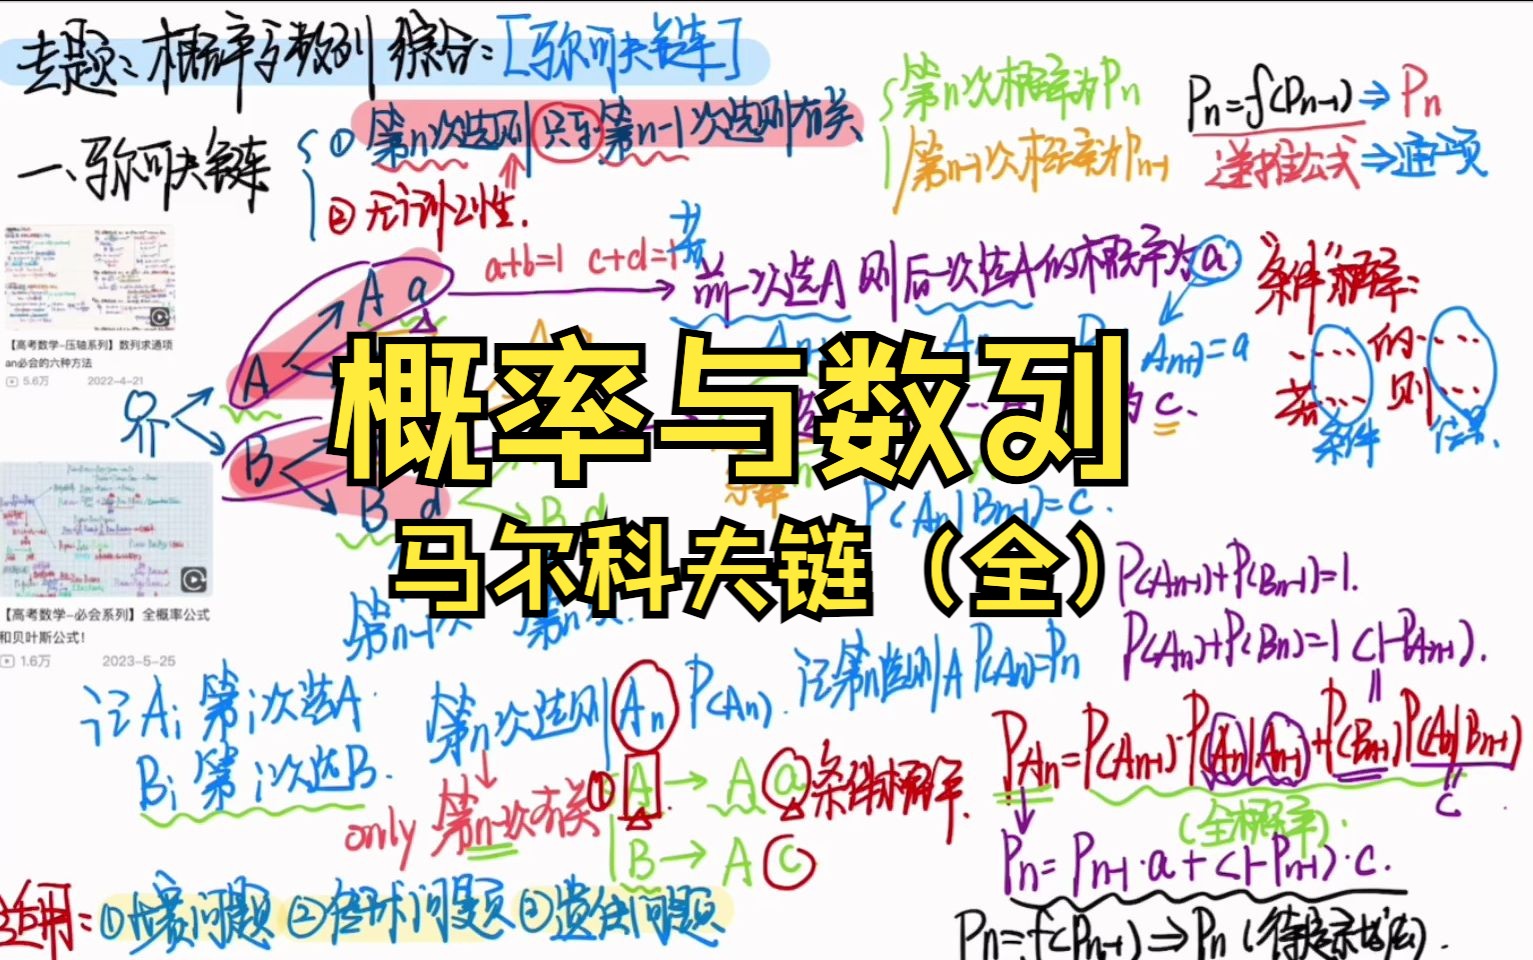 专题：概率与数列综合：[马尔可夫链]
一、马尔可夫链
① 第n次选则只与第n-1次选则有关
② 无后效性.
第n次概率为Pn
第n-1次概率为Pn-1
Pn=f(Pn-1)⇒Pn
递推公式⇒通项
【高考数学-压轴系列】数列求通项
an必会的六种方法
5.6万 2022-4-21
A
A a
a+b=1 c+d=1
若前一次选A 则后一次选A的概率为a
"条件"概率：
An-1)=a
的
若 则
条件
B
B d
为 c.
概率与数列
B d
P(An|Bn-1)=c.
马尔科夫链（全）
【高考数学-必会系列】全概率公式
和贝叶斯公式！
1.6万 2023-5-25
第n-1次 第n次.
P(An-1)+P(Bn-1)=1.
P(An)+P(Bn)=1 (1-P(An-1)).
记Ai 第i次选A
Bi 第i次选B.
第n次选则 An P(An).
记第n次选则A P(An)=Pn
only 第n-1次有关
① A→A a 条件概率.
B→A c
PAn=P(An-1)·P(An|An-1)+P(Bn-1)P(An|Bn-1)
c
(全概率).
Pn=Pn-1·a+(1-Pn-1)·c.
Pn=f(Pn-1)⇒Pn (待定系数法).
应用：①比赛问题 ②传球问题 ③遗传问题